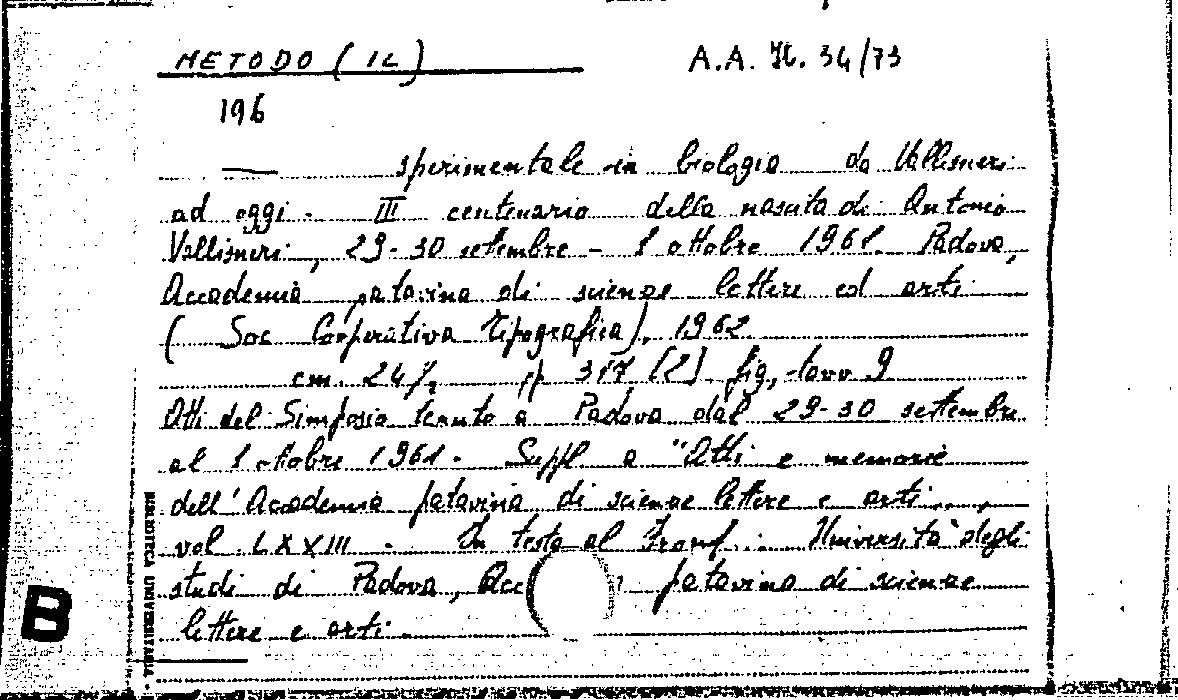 METODO (IL) A.A. H. 34/73
196
—— sperimentale in biologia da Vallisneri
ad oggi - III centenario della nascita di Antonio
Vallisneri, 29-30 settembre - 1 ottobre 1961. Padova,
Accademia patavina di scienze lettere ed arti
(Soc Cooperativa Tipografica), 1962
cm. 24½ pp 317 [2] fig, tavv 9
Atti del Simposio tenuto a Padova dal 29-30 settembre
al 1 ottobre 1961. Suppl. a "Atti e memorie
dell'Accademia patavina di scienze lettere e arti...,
vol LXXIII - In testa al Front.: Università degli
studi di Padova, Acc patavina di scienze
lettere e arti.
BIBLIOTECA UNIVERSITARIA
B